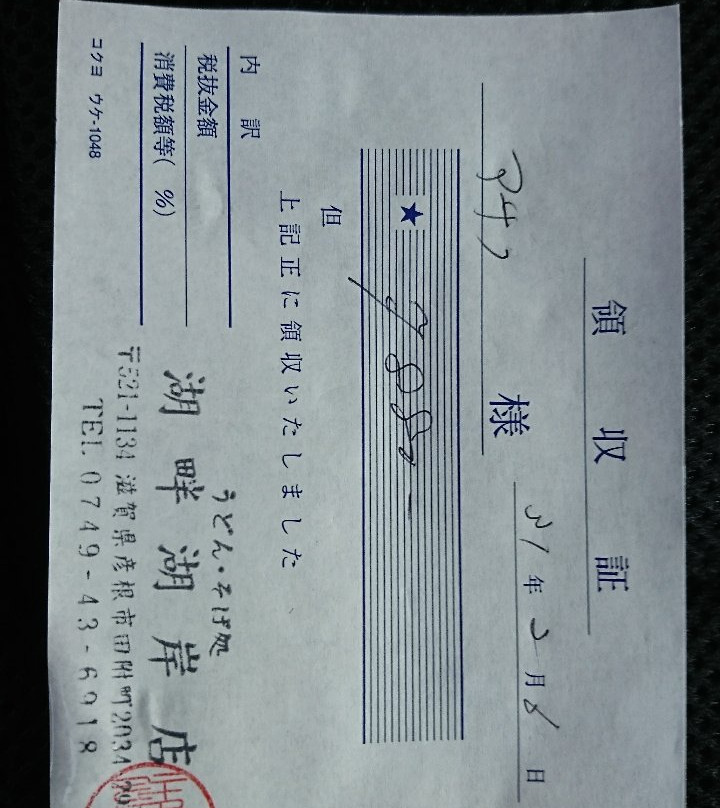 領収証
31年2月8日
アサノ様
★ 7880-
但
上記正に領収いたしました
内訳
税抜金額
消費税額等( %)
コクヨ ウケ-1048
うどん・そば処
湖畔湖岸店
〒521-1134 滋賀県彦根市田附町2034
TEL 0749-43-6918